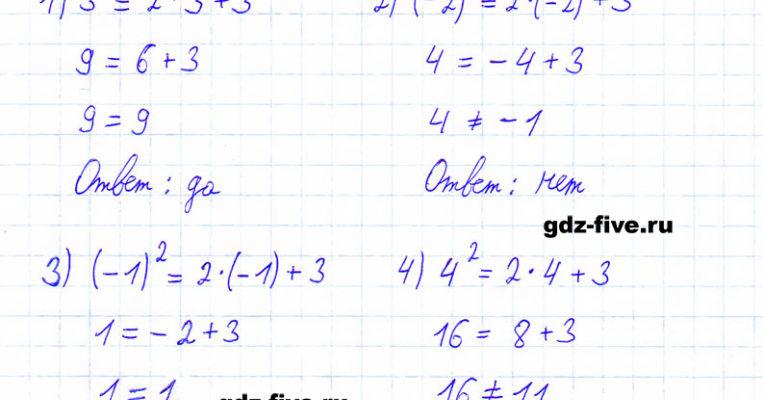 1) 3² = 2·3+3
2) (-2)² = 2·(-2)+3
9 = 6+3
4 = -4+3
9 = 9
4 ≠ -1
Ответ: да
Ответ: нет
gdz-five.ru
3) (-1)² = 2·(-1)+3
4) 4² = 2·4+3
1 = -2+3
16 = 8+3
1 = 1
16 ≠ 11
gdz-five.ru